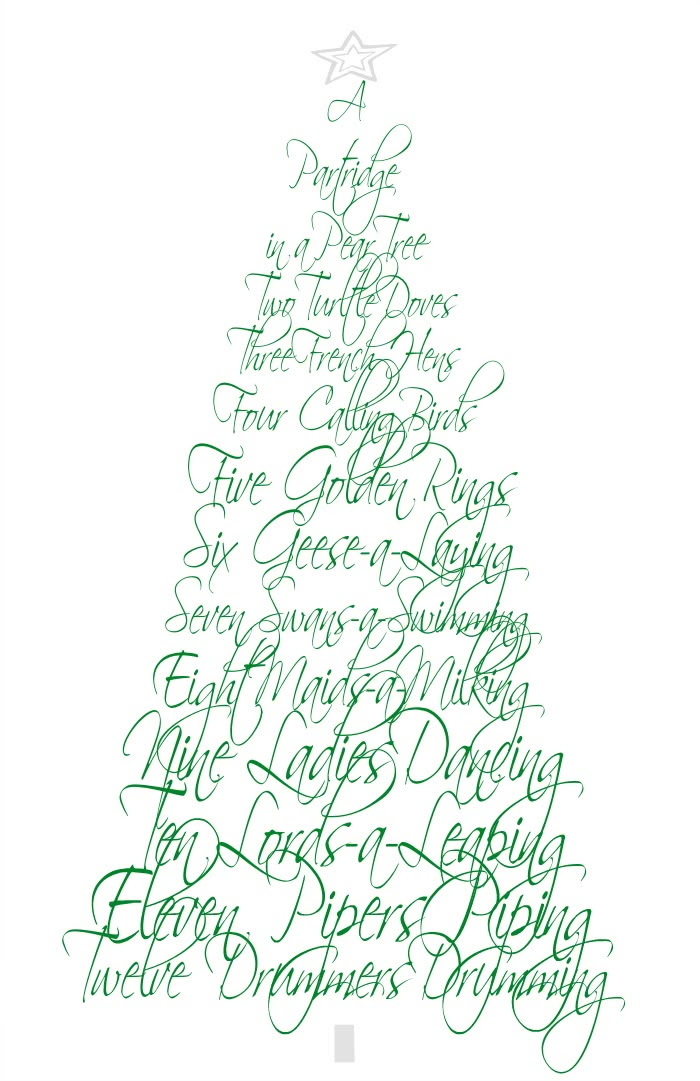 A
Partridge
in a Pear Tree
Two Turtle Doves
Three French Hens
Four Calling Birds
Five Golden Rings
Six Geese-a-Laying
Seven Swans-a-Swimming
Eight Maids-a-Milking
Nine Ladies Dancing
Ten Lords-a-Leaping
Eleven Pipers Piping
Twelve Drummers Drumming